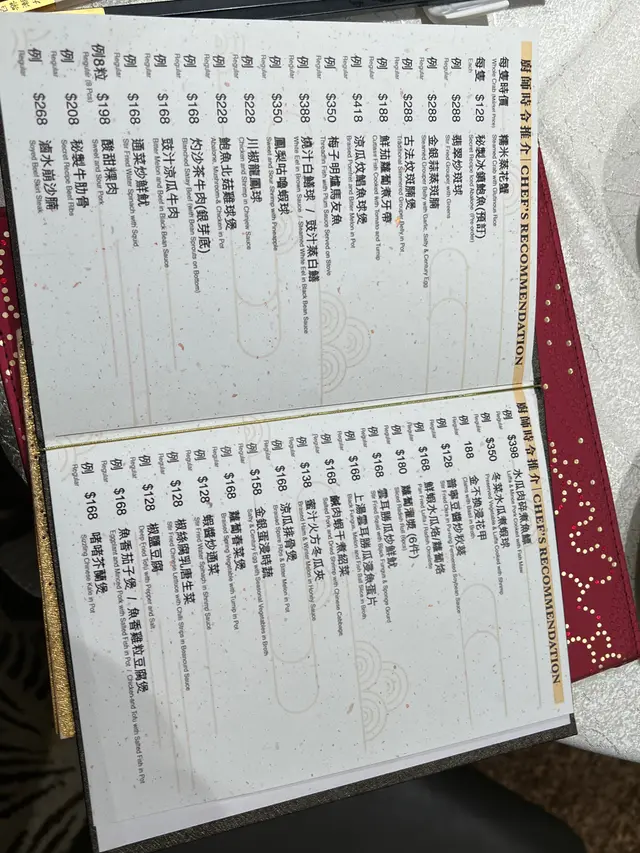 廚師時令推介 | CHEF'S RECOMMENDATION
每隻時價 糯米蒸花蟹
Whole Crab (Market Price) Steamed Crab with Glutinous Rice
每隻 $128 秘製冰鎮鮑魚(預訂)
Each Secret Recipe Iced Abalone (Pre-order)
例 $288 翡翠炒斑球
Regular Stir Fried Grouper with Greens
例 $288 金銀蒜蒸斑腩
Regular Steamed Grouper Belly with Garlic, Salty & Century Egg
例 $288 古法炆斑腩煲
Regular Traditional Simmered Grouper Belly in Pot
例 $188 鮮茄蘿蔔煮牙帶
Regular Cutlass Fish Cooked with Tomato and Turnip
例 $418 涼瓜炆鱔魚球煲
Regular Braised and Bitter Melon in Pot
例 $350 梅子明爐馬友魚
Regular Threadfin Fish with Plum Sauce Served on Stove
例 $388 燒汁白鱔球 / 豉汁蒸白鱔
Regular White Eel in Brown Sauce / Steamed White Eel in Black Bean Sauce
例 $350 鳳梨咕嚕蝦球
Regular Sweet and Sour Shrimp with Pineapple
例 $228 川椒龍鳳球
Regular Chicken and Shrimp in Chinjew Sauce
例 $228 鮑魚北菇雞球煲
Regular Abalone, Mushroom & Chicken in Pot
例 $168 灼沙茶牛肉(銀芽底)
Regular Blanched Satay Beef (with Bean Sprouts on Bottom)
例 $168 豉汁涼瓜牛肉
Regular Bitter Melon and Beef in Black Bean Sauce
例 $168 通菜炒鮮魷
Regular Stir Fried Water Spinach with Squid
例8粒 $198 酸甜粿肉
Regular (8 Pcs) Sweet and Sour Pork
例 $208 秘製牛肋骨
Regular Secret Recipe Beef Ribs
例 $268 滷水崩沙腩
Regular Stewed Beef Skirt Steak
廚師時令推介 | CHEF'S RECOMMENDATION
例 $398 水瓜肉碎煮魚鰾
Regular Loofa & Minced Pork Cooked with Fish Maw
例 $350 冬菜水瓜煮蝦球
Regular Preserved Vegetable & Loofa Cooked with Shrimp
例 188 金不換浸花甲
Regular Clams and Basil in Broth
例 $128 普寧豆醬炒秋葵
Regular Stir Fried Okra with Fermented Soybean Sauce
例 $168 鮮蝦水瓜烙/蘿蔔烙
Regular
例 $180 蘿蔔糍漿 (6件)
Regular
例 $168 雲耳勝瓜炒鮮魷
Regular Stir Fried Squid with Black Fungus & Sponge Gourd
例 $168 上湯雲耳勝瓜浸魚蛋片
Regular Black Fungus, Sponge Gourd and Fish Ball Slice in Broth
例 $168 鹹肉蝦干煮紹菜
Regular Salted Pork and Dried Shrimp with Chinese Cabbage
例 $138 蜜汁火方冬瓜夾
Regular Braised Ham & Winter Melon in Honey Sauce
例 $168 涼瓜排骨煲
Regular Braised Spare Ribs & Bitter Melon in Pot
例 $158 金銀蛋浸時蔬
Regular Salty & Century Egg with Seasonal Vegetables in Broth
例 $168 蘿蔔春菜煲
Regular Braised Spring Vegetable with Turnip in Pot
例 $128 蝦醬炒通菜
Regular Stir Fried Water Spinach in Shrimp Sauce
例 $128 椒絲腐乳唐生菜
Regular Stir Fried Chinese Lettuce with Chilli Strips in Beancurd Sauce
例 $128 椒鹽豆腐
Regular Deep Fried Tofu with Pepper and Salt
例 $168 魚香茄子煲 / 魚香雞粒豆腐煲
Regular Eggplant and Minced Pork with Salted Fish in Pot / Chicken and Tofu with Salted Fish in Pot
例 $168 啫啫芥蘭煲
Regular Sizzling Chinese Kale in Pot